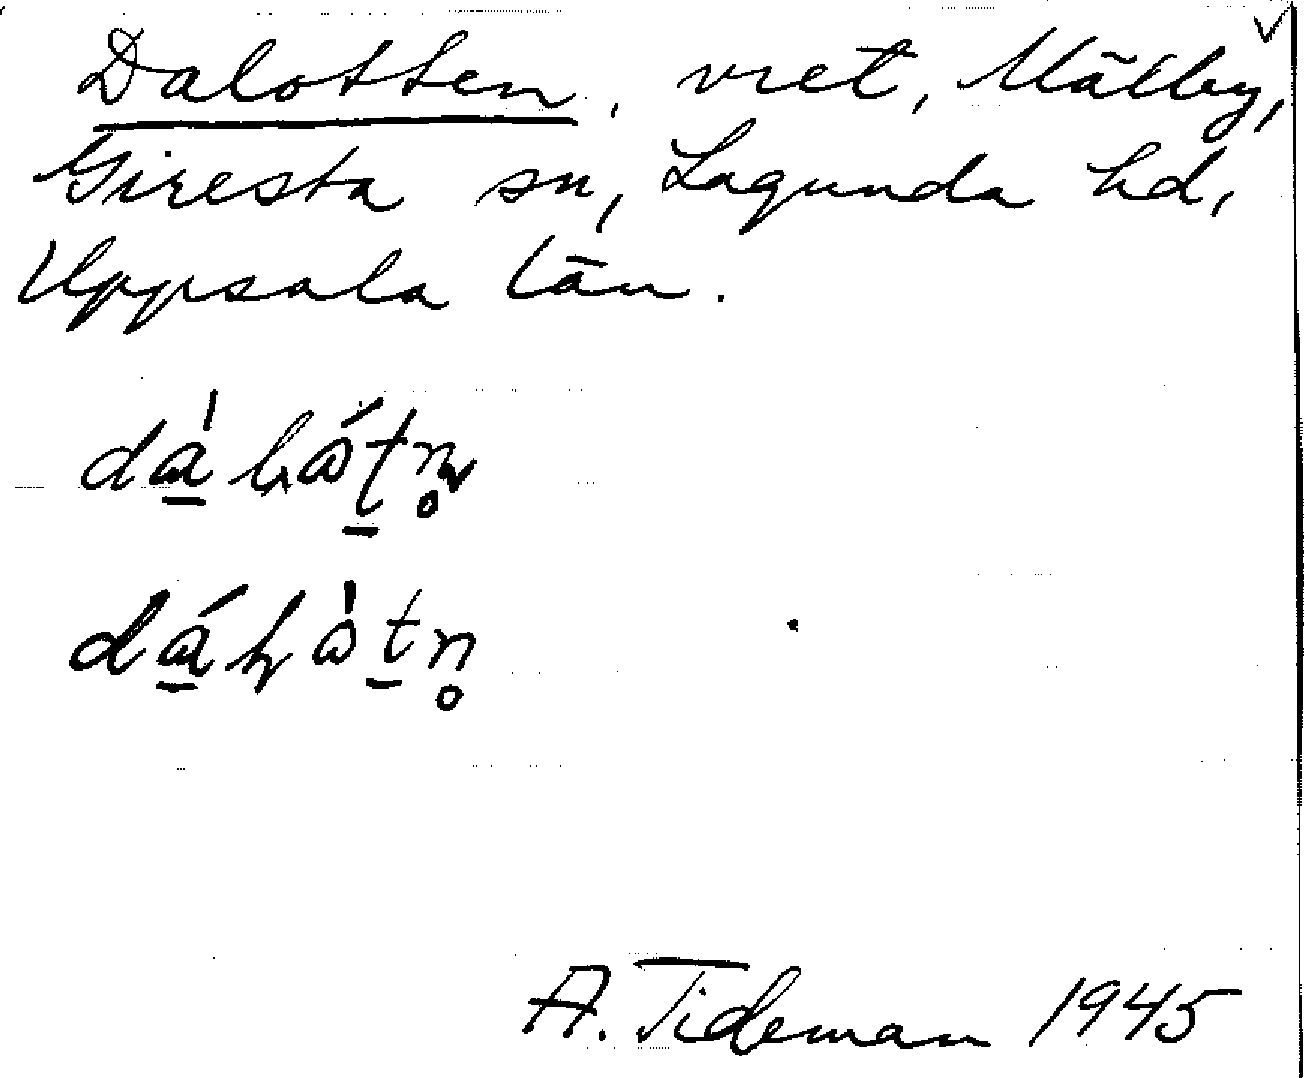 Dalotten, vret, Mälby,
Giresta sn, Lagunda hd,
Uppsala län.
A. Tideman 1945